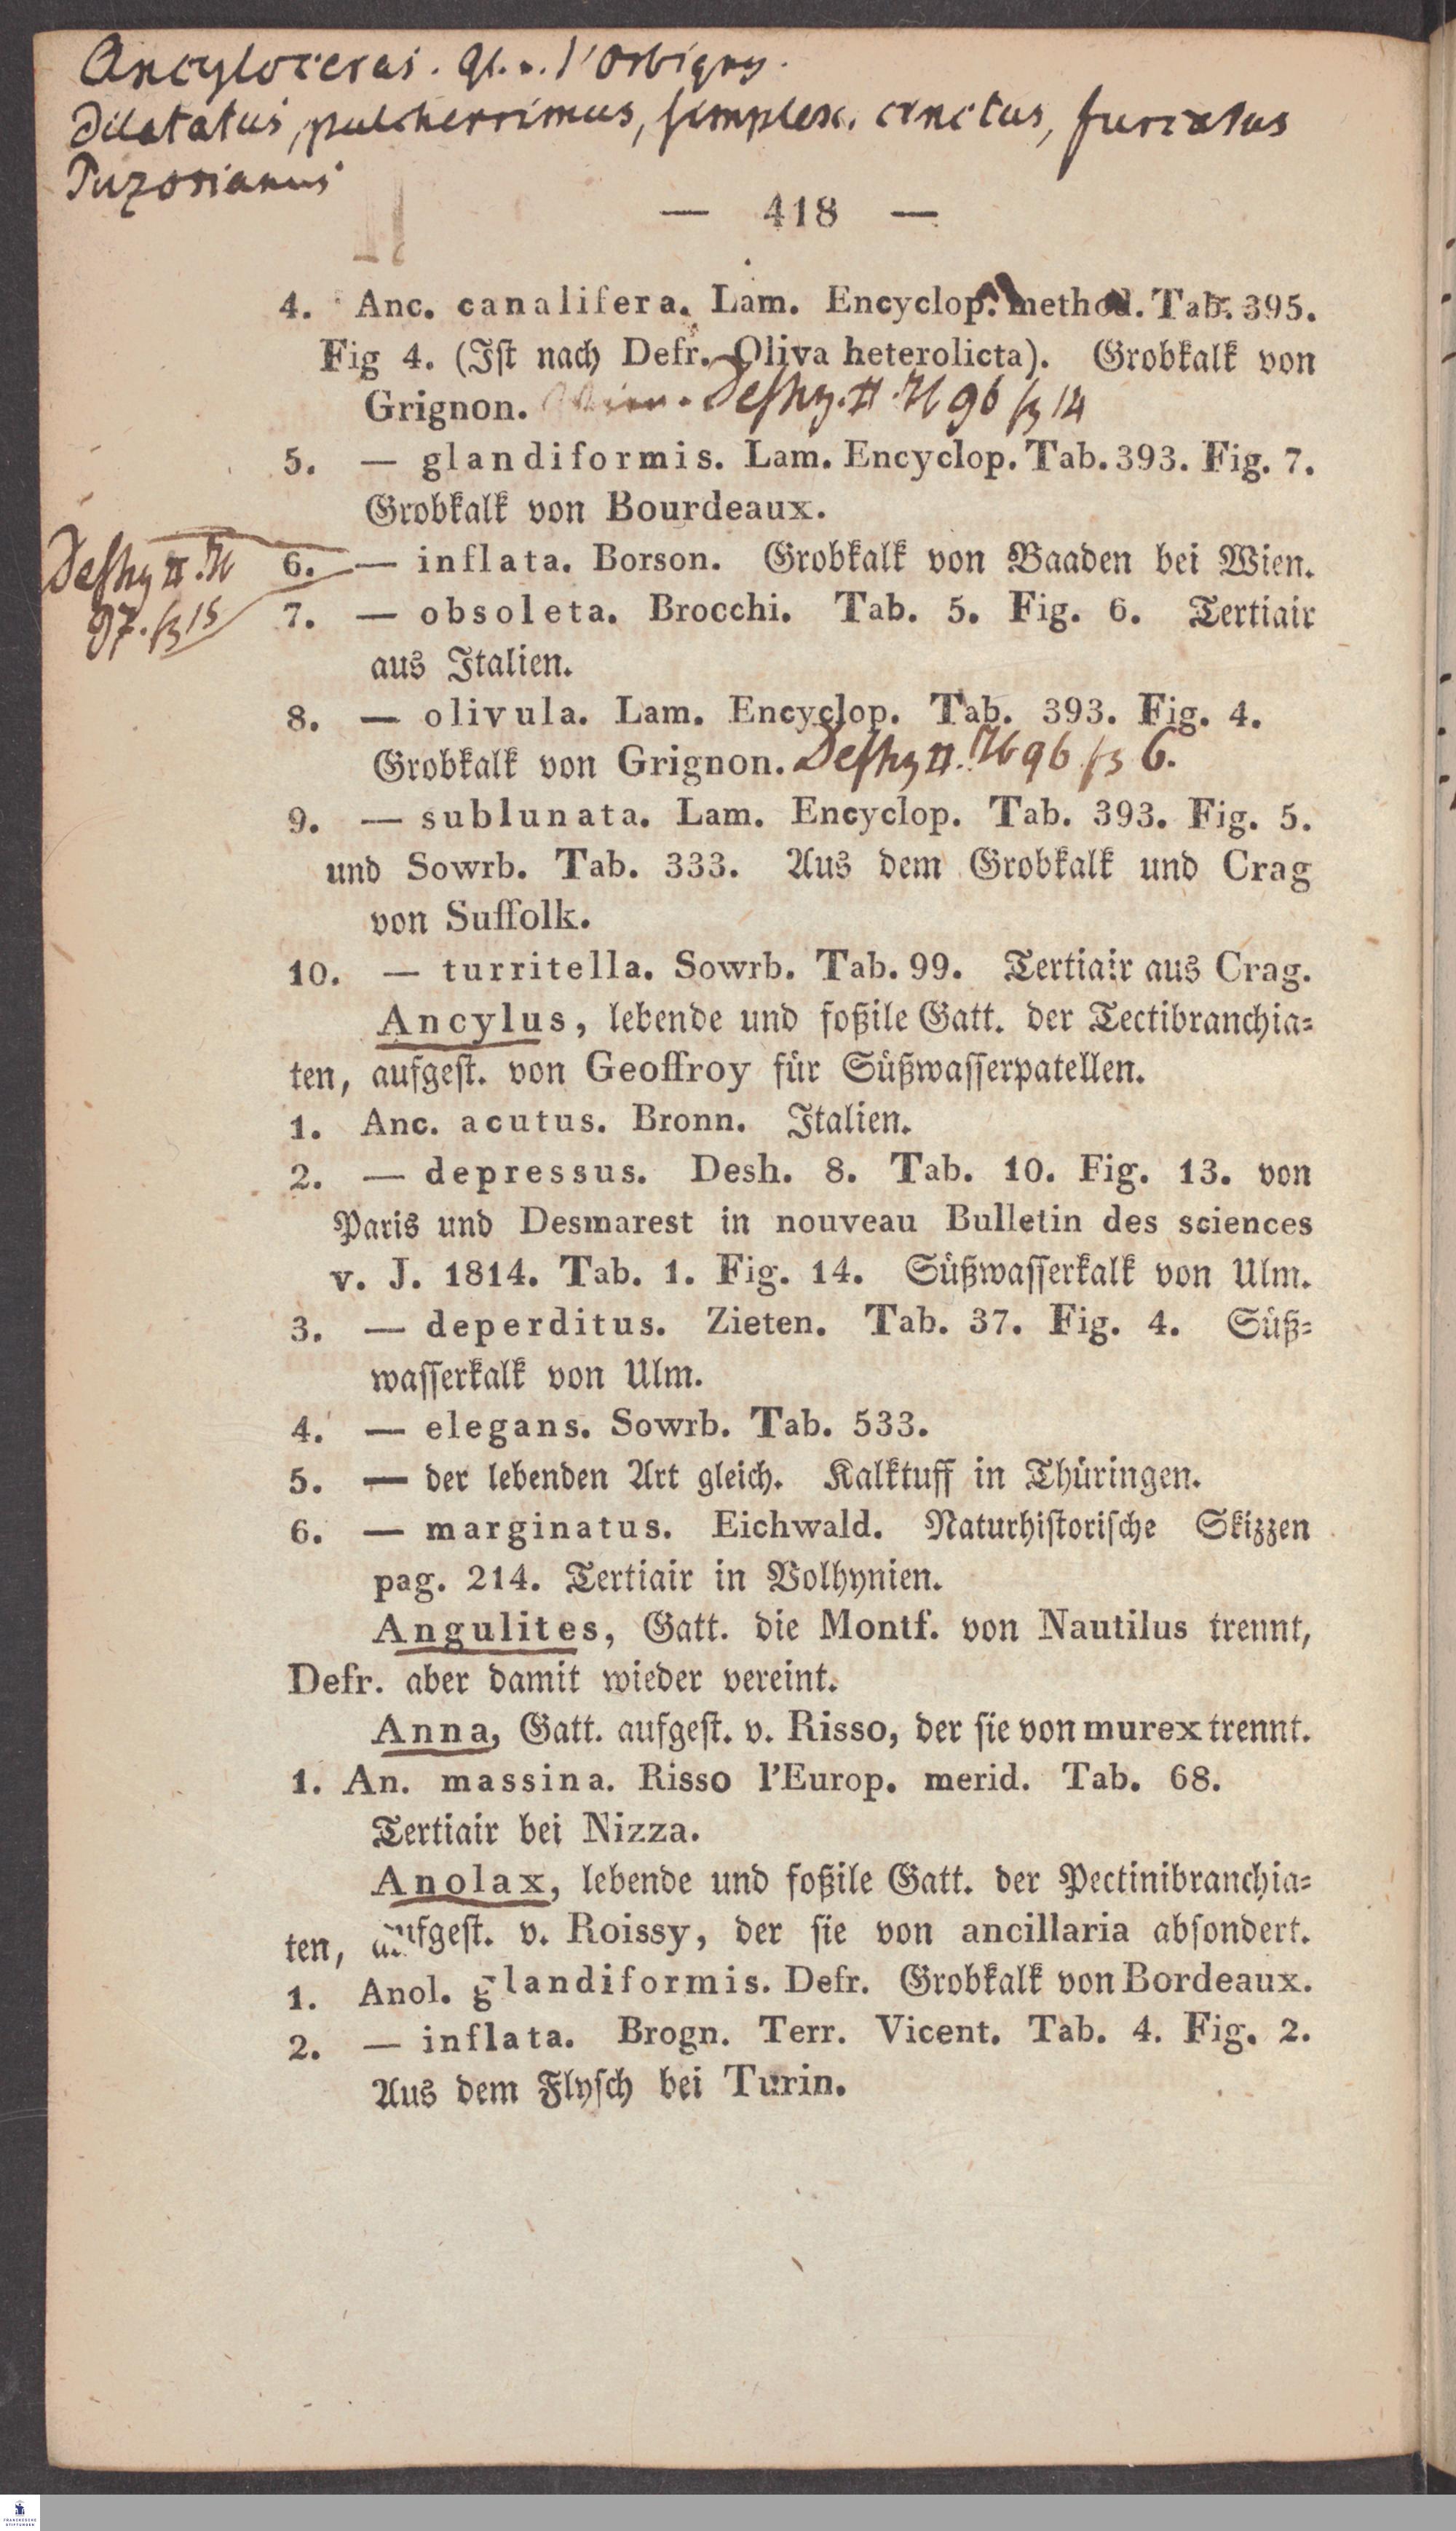 Ancyloceras. Gl. v. d'Orbigny.
Dilatatus, pulcherrimus, simplex. cinctus, furcatus
Puzosianus
— 418 —
4. Anc. canalifera. Lam. Encyclop. method. Tab. 395.
Fig 4. (Iſt nach Defr. Oliva heterolicta). Grobkalk von
Grignon. Deſhy. II. Tl 96 fg 14
5. — glandiformis. Lam. Encyclop. Tab. 393. Fig. 7.
Grobkalk von Bourdeaux.
Deſhy II. Tl
97. fg 15
6. — inflata. Borson. Grobkalk von Baaden bei Wien.
7. — obsoleta. Brocchi. Tab. 5. Fig. 6. Tertiair
aus Italien.
8. — olivula. Lam. Encyclop. Tab. 393. Fig. 4.
Grobkalk von Grignon. Deſhy II. Tl 96 fg 6.
9. — sublunata. Lam. Encyclop. Tab. 393. Fig. 5.
und Sowrb. Tab. 333. Aus dem Grobkalk und Crag
von Suffolk.
10. — turritella. Sowrb. Tab. 99. Tertiair aus Crag.
Ancylus, lebende und foßile Gatt. der Tectibranchia⸗
ten, aufgeſt. von Geoffroy für Süßwaſſerpatellen.
1. Anc. acutus. Bronn. Italien.
2. — depressus. Desh. 8. Tab. 10. Fig. 13. von
Paris und Desmarest in nouveau Bulletin des sciences
v. J. 1814. Tab. 1. Fig. 14. Süßwaſſerkalk von Ulm.
3. — deperditus. Zieten. Tab. 37. Fig. 4. Süß⸗
waſſerkalk von Ulm.
4. — elegans. Sowrb. Tab. 533.
5. — der lebenden Art gleich. Kalktuff in Thüringen.
6. — marginatus. Eichwald. Naturhiſtoriſche Skizzen
pag. 214. Tertiair in Volhynien.
Angulites, Gatt. die Montf. von Nautilus trennt,
Defr. aber damit wieder vereint.
Anna, Gatt. aufgeſt. v. Risso, der ſie von murex trennt.
1. An. massina. Risso l'Europ. merid. Tab. 68.
Tertiair bei Nizza.
Anolax, lebende und foßile Gatt. der Pectinibranchia⸗
ten, aufgeſt. v. Roissy, der ſie von ancillaria abſondert.
1. Anol. glandiformis. Defr. Grobkalk von Bordeaux.
2. — inflata. Brogn. Terr. Vicent. Tab. 4. Fig. 2.
Aus dem Flyſch bei Turin.
FRANCKESCHE
STIFTUNGEN